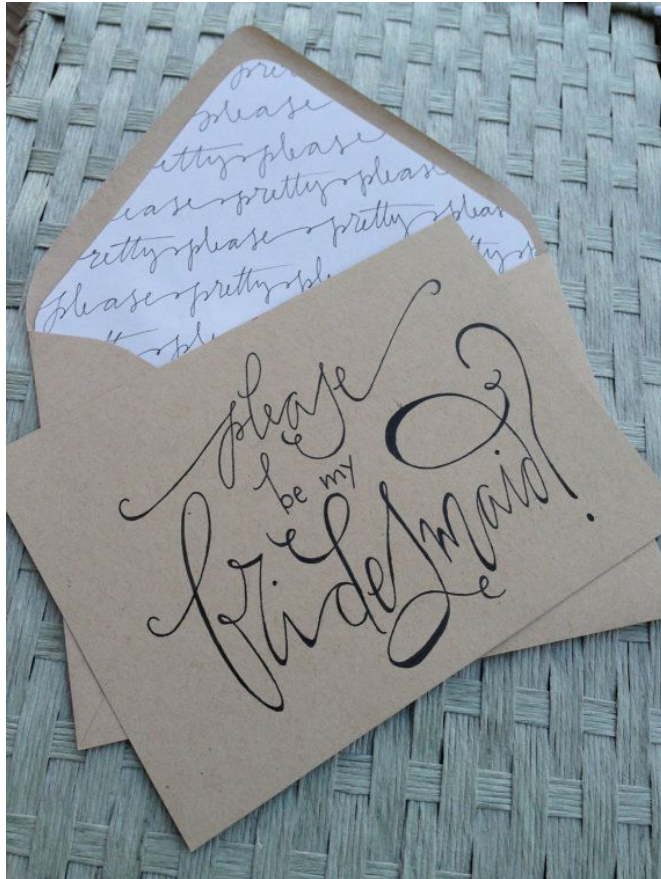 pre
please
etty please
ease pretty please
retty please pretty pleas
please pretty ple
tty
please
be my
bridesmaid?